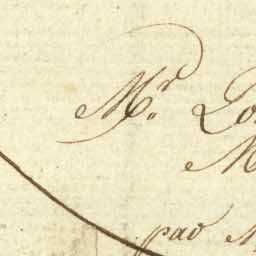 Mr. Lo
M
pao M